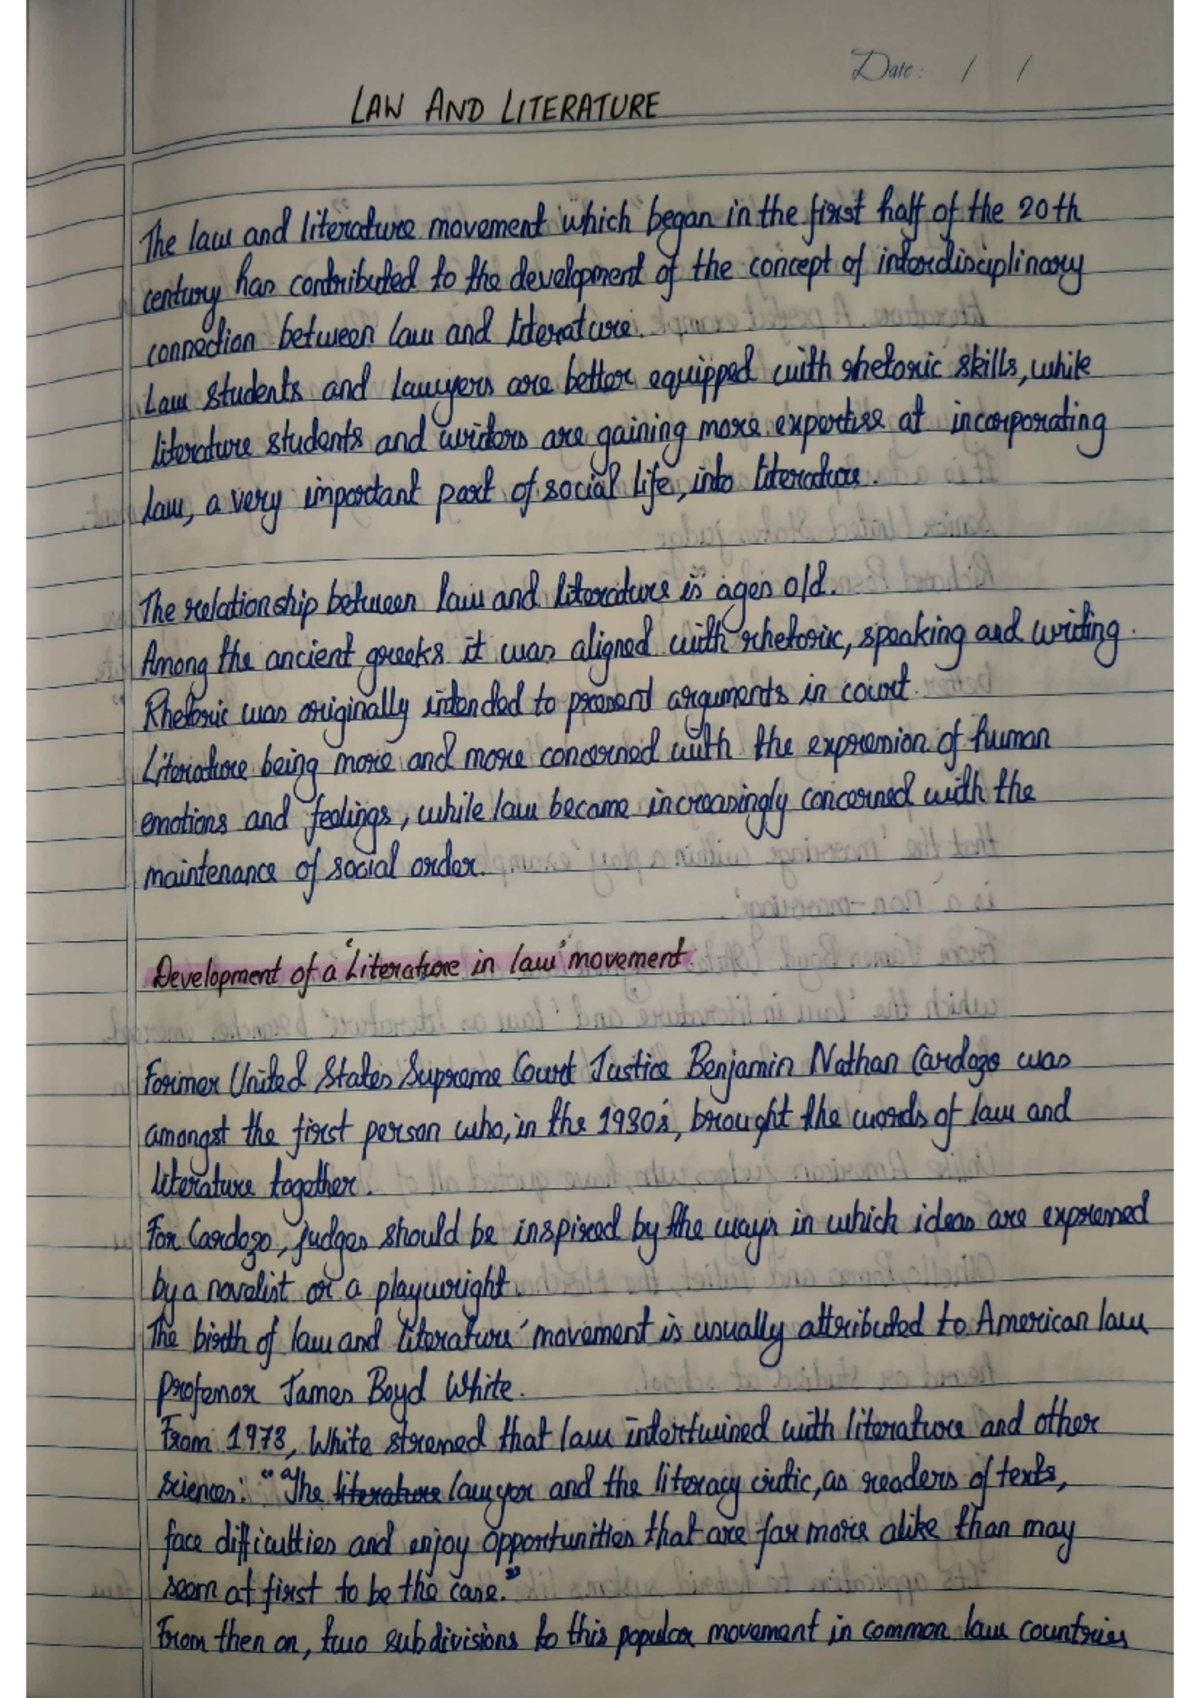 Date: / /
LAW AND LITERATURE
The law and literature movement which began in the first half of the 20th
century has contributed to the development of the concept of interdisciplinary
connection between law and literature.
Law students and lawyers are better equipped with rhetoric skills, while
literature students and writers are gaining more expertise at incorporating
law, a very important part of social life, into literature.
The relationship between law and literature is ages old.
Among the ancient greeks it was aligned with rhetoric, speaking and writing.
Rhetoric was originally intended to present arguments in court.
Literature being more and more concerned with the expression of human
emotions and feelings, while law became increasingly concerned with the
maintenance of social order.
Development of a 'Literature in law' movement
Former United States Supreme Court Justice Benjamin Nathan Cardozo was
amongst the first person who, in the 1930s, brought the words of law and
literature together.
For Cardozo, judges should be inspired by the ways in which ideas are expressed
by a novelist or a playwright.
The birth of law and literature' movement is usually attributed to American law
Professor James Boyd White.
From 1973, White stressed that law intertwined with literature and other
sciences: "The literature lawyer and the literacy critic, as readers of texts,
face difficulties and enjoy opportunities that are far more alike than may
seem at first to be the case."
From then on, two subdivisions to this popular movement in common law countries